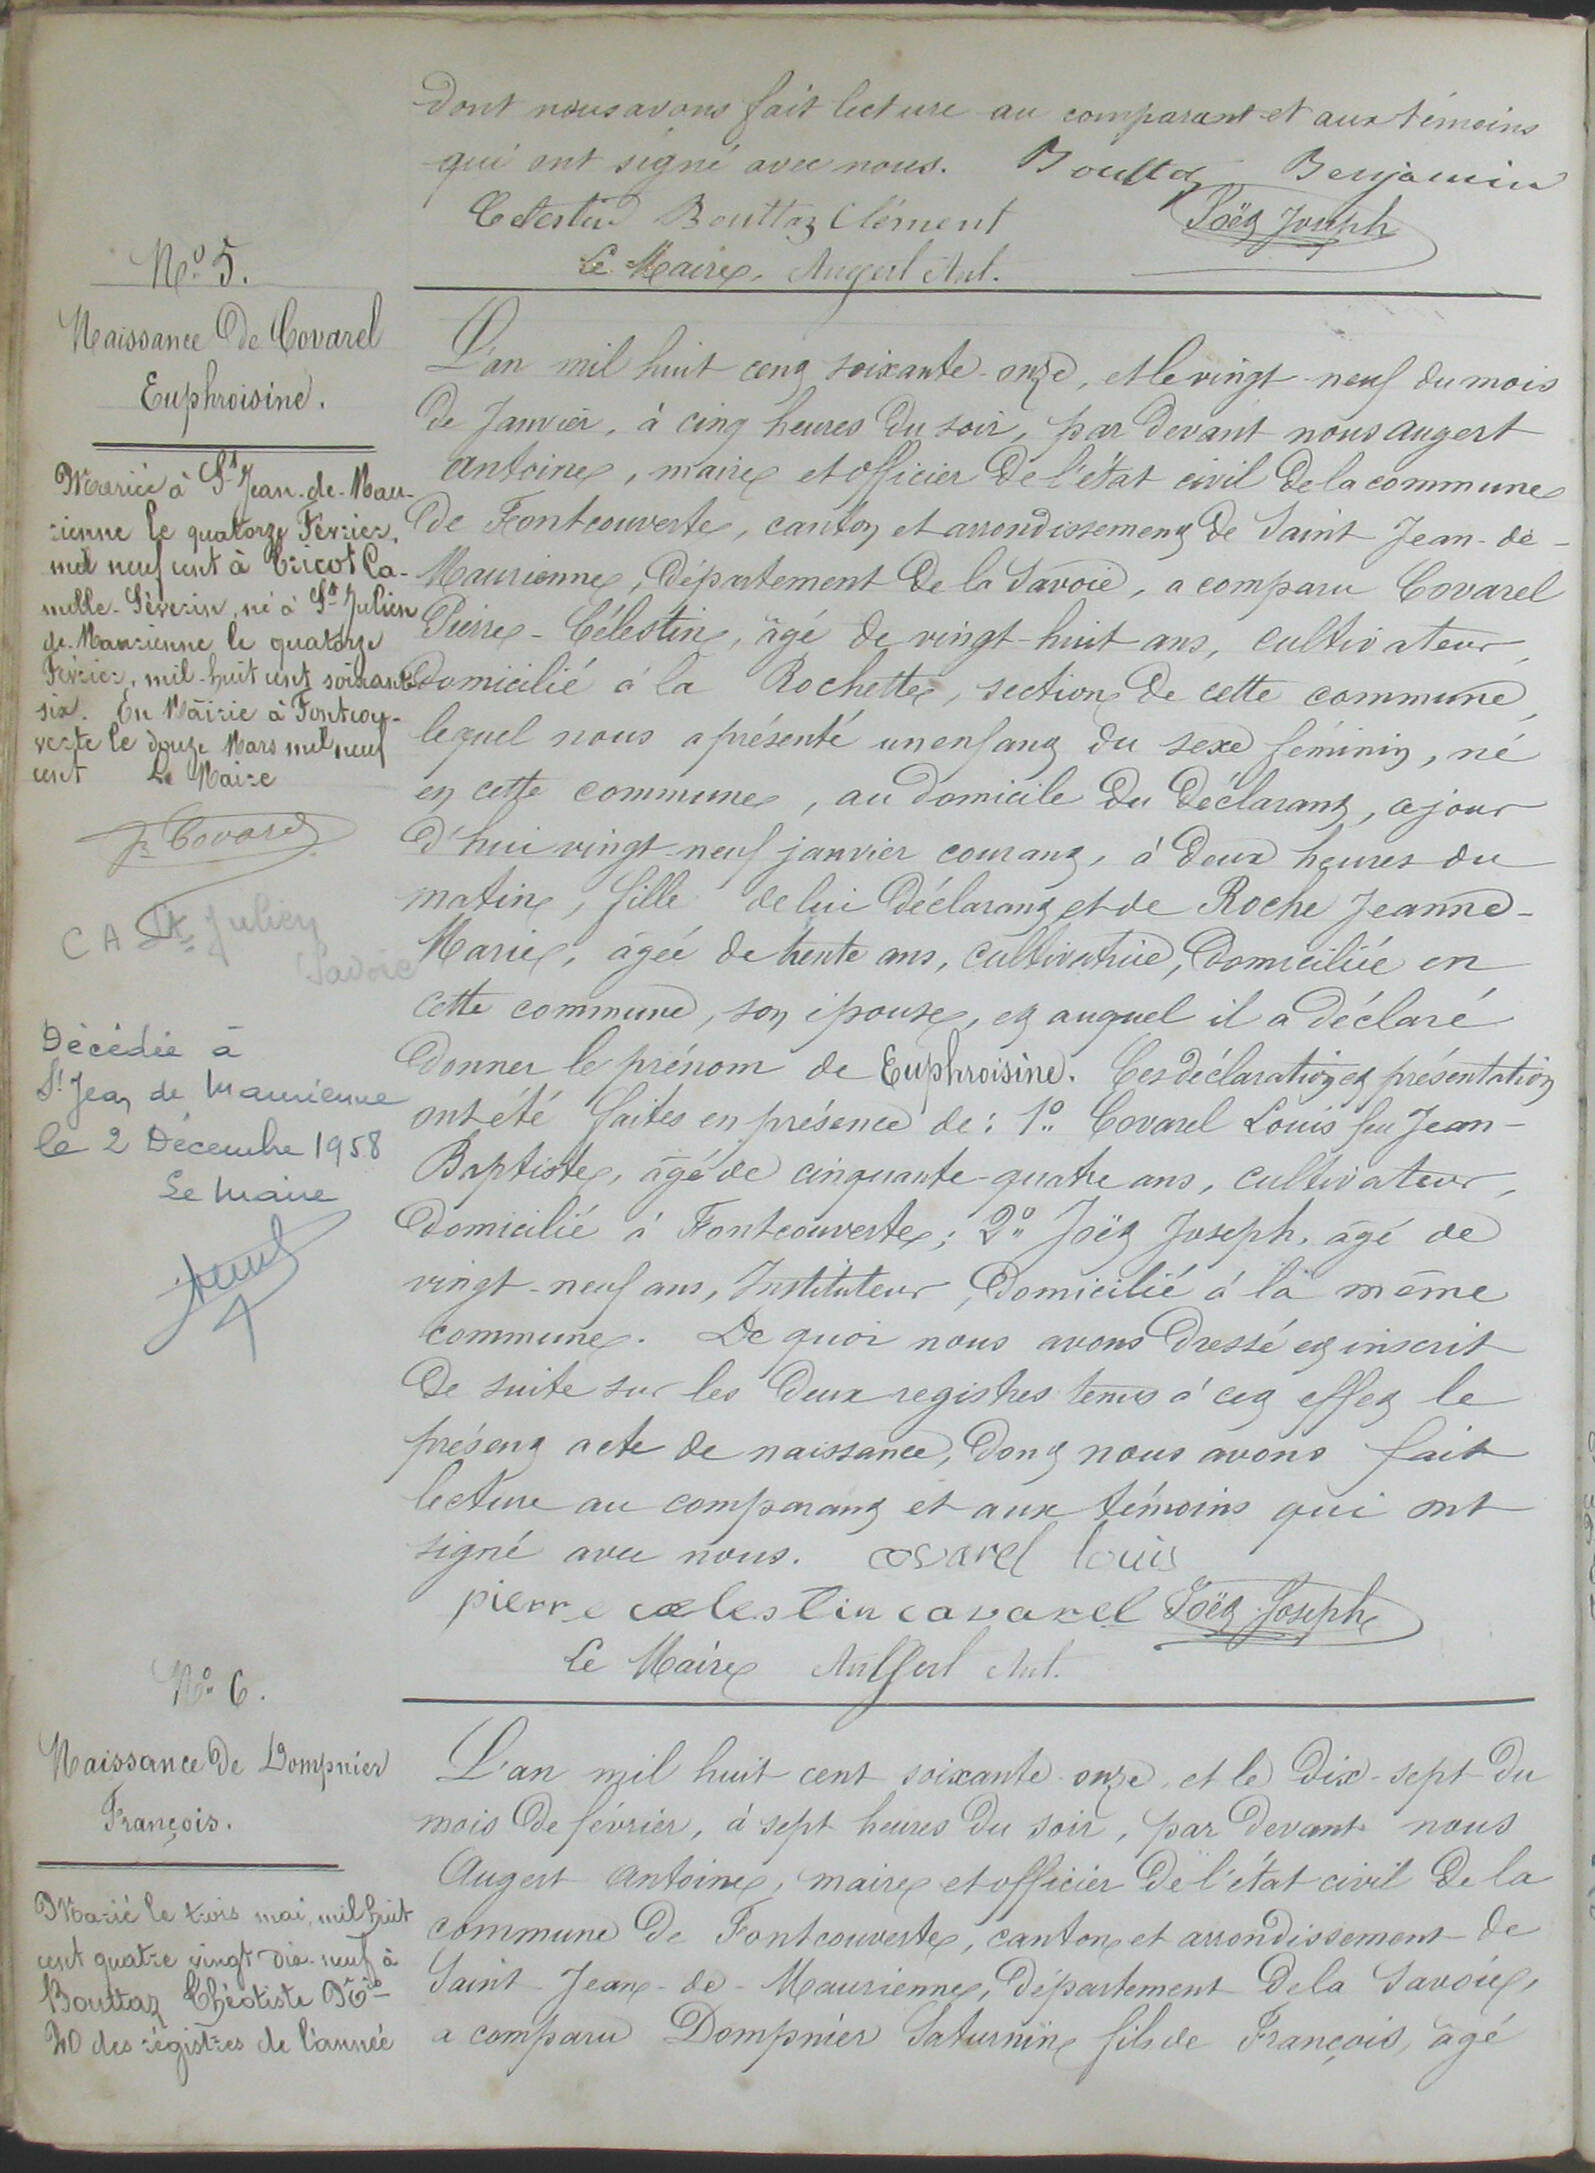 dont nous avons fait lecture au comparant et aux témoins
qui ont signé avec nous. Bouttaz Benjamin
Celestin Bouttaz Clément Joët Joseph
Le Maire, Augert Ant.
N° 5.
Naissance de Covarel
Euphroisine.
Mariée à St Jean-de-Mau-
rienne le quatorze Février
mil neuf cent à Tricot Ca-
mille-Séverin, né à St Julien
de Maurienne le quatorze
Février, mil-huit cent soixante
six. En Mairie à Fontcou-
verte le douze Mars mil neuf
cent Le Maire
Covarel
CA St Julien
Savoie
Décédée à
St Jean de Maurienne
le 2 Décembre 1958
Le Maire
L'an mil huit cent soixante-onze, et le vingt-neuf du mois
de Janvier, à cinq heures du soir, par devant nous Augert
Antoine, maire et officier de l'état civil de la commune
de Fontcouverte, canton et arrondissement de Saint-Jean-de-
Maurienne, département de la Savoie, a comparu Covarel
Pierre-Célestin, âgé de vingt-huit ans, cultivateur,
domicilié à la Rochette, section de cette commune,
lequel nous a présenté un enfant du sexe féminin, né
en cette commune, au domicile du déclarant, ajour
d'hui vingt-neuf janvier courant, à deux heures du
matin, fille de lui déclarant et de Roche Jeanne-
Marie, âgée de trente ans, cultivatrice, domiciliée en
cette commune, son épouse, et auquel il a déclaré
donner le prénom de Euphroisine. Ces déclaration et présentation
ont été faites en présence de: 1° Covarel Louis feu Jean-
Baptiste, âgé de cinquante-quatre ans, cultivateur,
domicilié à Fontcouverte; 2° Joët Joseph, âgé de
vingt-neuf ans, Instituteur, domicilié à la même
commune. De quoi nous avons dressé et inscrit
de suite sur les deux registres tenus à cet effet le
présent acte de naissance, dont nous avons fait
lecture au comparant et aux témoins qui ont
signé avec nous. covarel louis
pierre celestin cavarel Joët Joseph
Le Maire Augert Ant.
N° 6.
Naissance de Dompnier
François.
Marié le trois mai, mil huit
cent quatre vingt dix-neuf à
Bouttaz Théotiste
des régistres de l'année
L'an mil huit cent soixante-onze, et le dix-sept du
mois de février, à sept heures du soir, par devant nous
Augert Antoine, maire et officier de l'état civil de la
commune de Fontcouverte, canton et arrondissement de
Saint-Jean-de-Maurienne, département de la Savoie,
a comparu Dompnier Saturnin fils de François, âgé